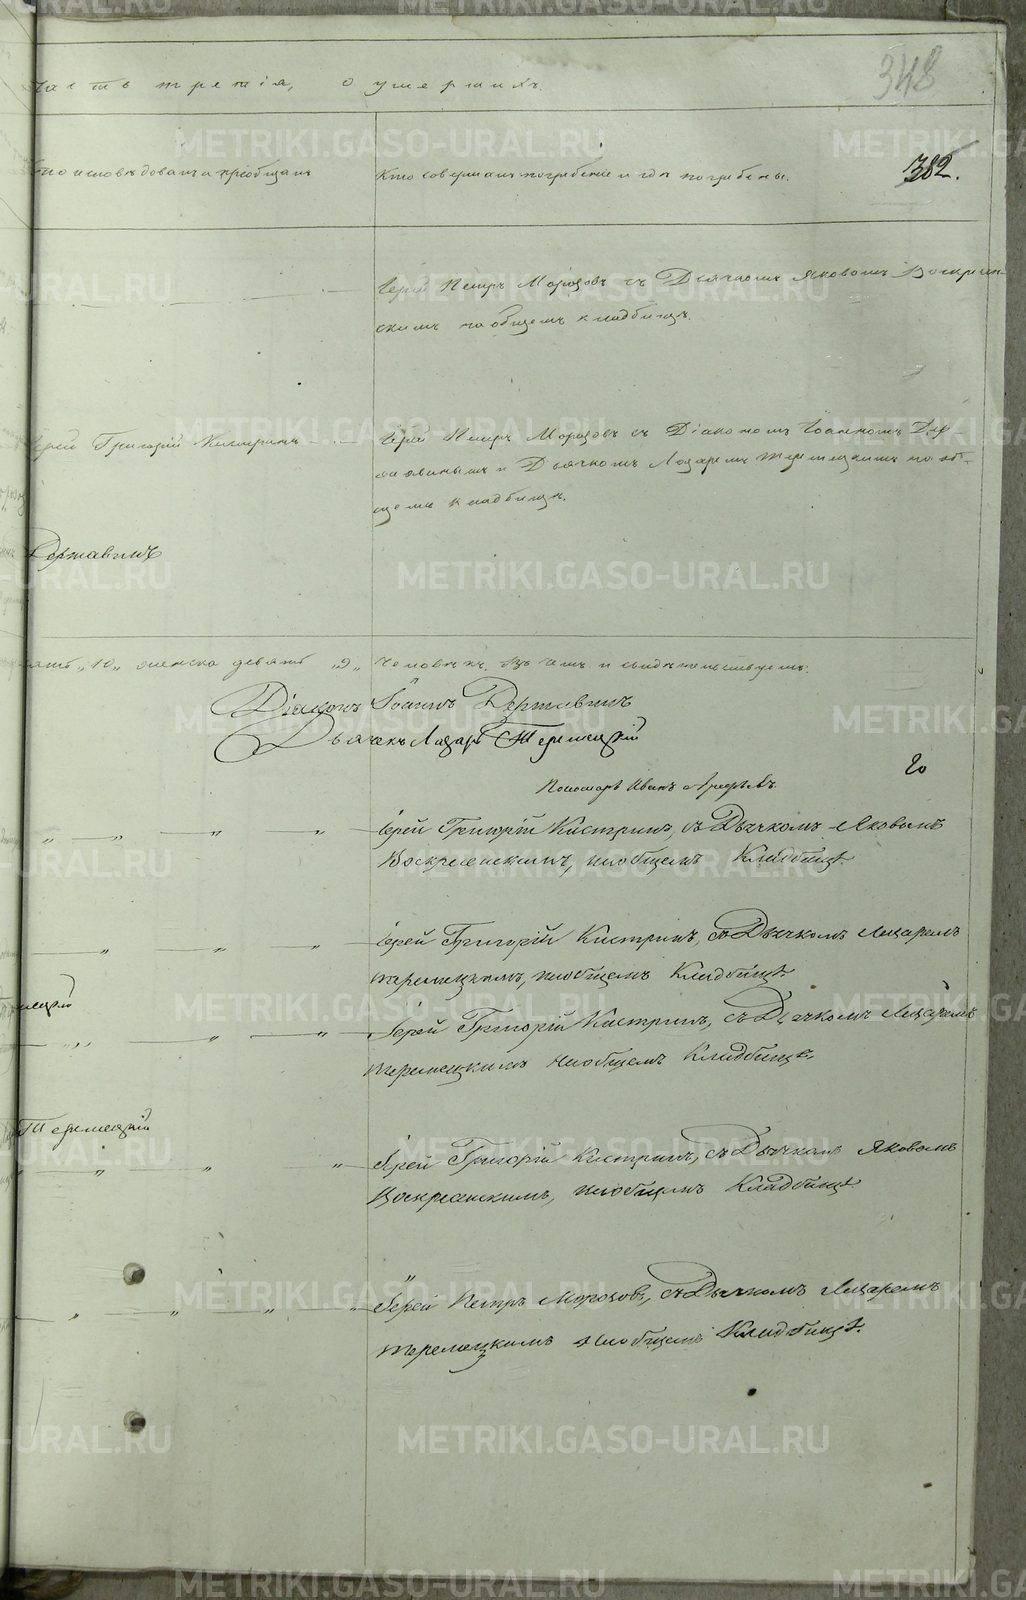 348
Часть третія, о умершихъ.
кто исповѣдовалъ и пріобщалъ
Кто совершалъ погребеніе и гдѣ погребены.
382.
Іерей Петръ Морозовъ съ Дьячкомъ Яковомъ Воскресен-
скимъ на общемъ кладбищѣ.
Іерей Григорій Кистринъ
Іерей Петръ Морозовъ съ Діакономъ Іоанномъ Дер-
жавинымъ и Дьячкомъ Лазаремъ Теремецкимъ на об-
щемъ кладбищѣ.
Державинъ
"10" женска девять "9" человѣкъ. Въ чемъ и свидѣтельствуемъ.
Діаконъ Іоаннъ Державинъ
Дьячекъ Лазарь Теремецкій
Пономарь Иванъ
Іерей Григорій Кистринъ, съ Дьячкомъ Яковомъ
Воскресенскимъ, на общемъ Кладбищѣ.
Іерей Григорій Кистринъ, съ Дьячкомъ Лазаремъ
теремецкимъ, на общемъ Кладбищѣ.
Іерей Григорій Кистринъ, съ Дьячкомъ Лазаремъ
теремецкимъ на общемъ Кладбищѣ.
Теремецкій
Іерей Григорій Кистринъ, съ Дьячкомъ Яковомъ
Воскресенскимъ, на общемъ Кладбищѣ.
Іерей Петръ Морозовъ, съ Дьячкомъ Лазаремъ
теремецкимъ на общемъ Кладбищѣ.
METRIKI.GASO-URAL.RU